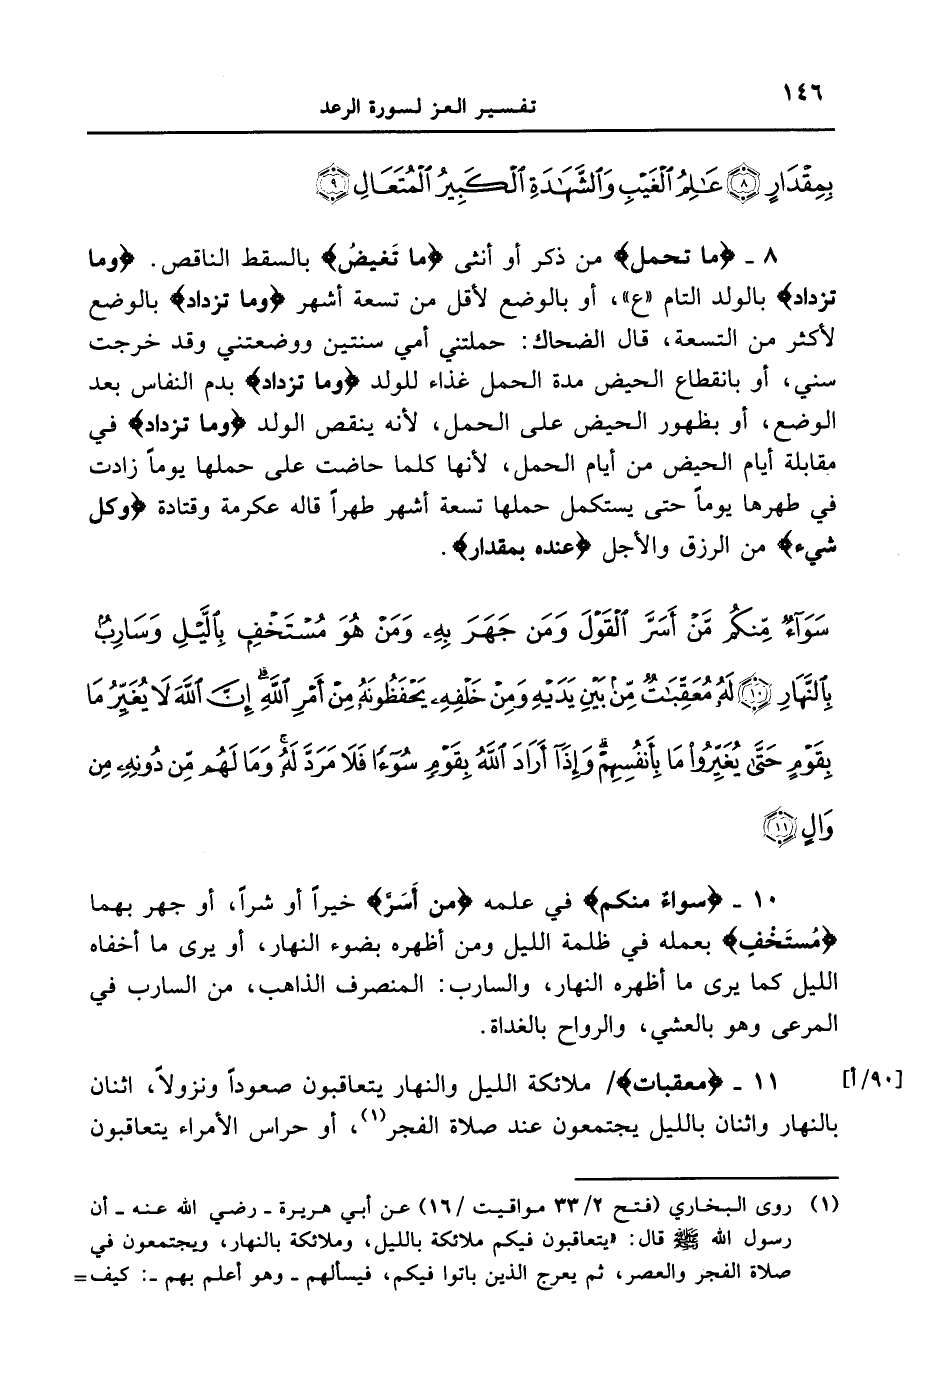 ١٤٦
تفسير العز لسورة الرعد
بِمِقْدَارٍ ۝٨ عَٰلِمُ ٱلْغَيْبِ وَٱلشَّهَٰدَةِ ٱلْكَبِيرُ ٱلْمُتَعَالِ ۝٩
٨ ـ ﴿ما تحمل﴾ من ذكر أو أنثى ﴿ما تَغيضُ﴾ بالسقط الناقص. ﴿وما
تزداد﴾ بالولد التام «ع»، أو بالوضع لأقل من تسعة أشهر ﴿وما تزداد﴾ بالوضع
لأكثر من التسعة، قال الضحاك: حملتني أمي سنتين ووضعتني وقد خرجت
سني، أو بانقطاع الحيض مدة الحمل غذاء للولد ﴿وما تزداد﴾ بدم النفاس بعد
الوضع، أو بظهور الحيض على الحمل، لأنه ينقص الولد ﴿وما تزداد﴾ في
مقابلة أيام الحيض من أيام الحمل، لأنها كلما حاضت على حملها يوماً زادت
في طهرها يوماً حتى يستكمل حملها تسعة أشهر طهراً قاله عكرمة وقتادة ﴿وكل
شيء﴾ من الرزق والأجل ﴿عنده بمقدار﴾.
سَوَآءٌ مِّنكُم مَّنْ أَسَرَّ ٱلْقَوْلَ وَمَن جَهَرَ بِهِۦ وَمَنْ هُوَ مُسْتَخْفٍ بِٱلَّيْلِ وَسَارِبٌۢ
بِٱلنَّهَارِ ۝١٠ لَهُۥ مُعَقِّبَٰتٌ مِّنۢ بَيْنِ يَدَيْهِ وَمِنْ خَلْفِهِۦ يَحْفَظُونَهُۥ مِنْ أَمْرِ ٱللَّهِ ۗ إِنَّ ٱللَّهَ لَا يُغَيِّرُ مَا
بِقَوْمٍ حَتَّىٰ يُغَيِّرُوا۟ مَا بِأَنفُسِهِمْ ۗ وَإِذَآ أَرَادَ ٱللَّهُ بِقَوْمٍ سُوٓءًا فَلَا مَرَدَّ لَهُۥ ۚ وَمَا لَهُم مِّن دُونِهِۦ مِن
وَالٍ ۝١١
١٠ ـ ﴿سواءٌ منكم﴾ في علمه ﴿من أَسَرَّ﴾ خيراً أو شراً، أو جهر بهما
﴿مُستَخْفٍ﴾ بعمله في ظلمة الليل ومن أظهره بضوء النهار، أو يرى ما أخفاه
الليل كما يرى ما أظهره النهار، والسارب: المنصرف الذاهب، من السارب في
المرعى وهو بالعشي، والرواح بالغداة.
١١ ـ ﴿معقبات﴾/ ملائكة الليل والنهار يتعاقبون صعوداً ونزولاً، اثنان [٩٠/أ]
بالنهار واثنان بالليل يجتمعون عند صلاة الفجر(١)، أو حراس الأمراء يتعاقبون
(١) روى البخاري (فتح ٣٣/٢ مواقيت /١٦) عن أبي هريرة ـ رضي الله عنه ـ أن
رسول الله ﷺ قال: «يتعاقبون فيكم ملائكة بالليل، وملائكة بالنهار، ويجتمعون في
صلاة الفجر والعصر، ثم يعرج الذين باتوا فيكم، فيسألهم ـ وهو أعلم بهم ـ: كيف=